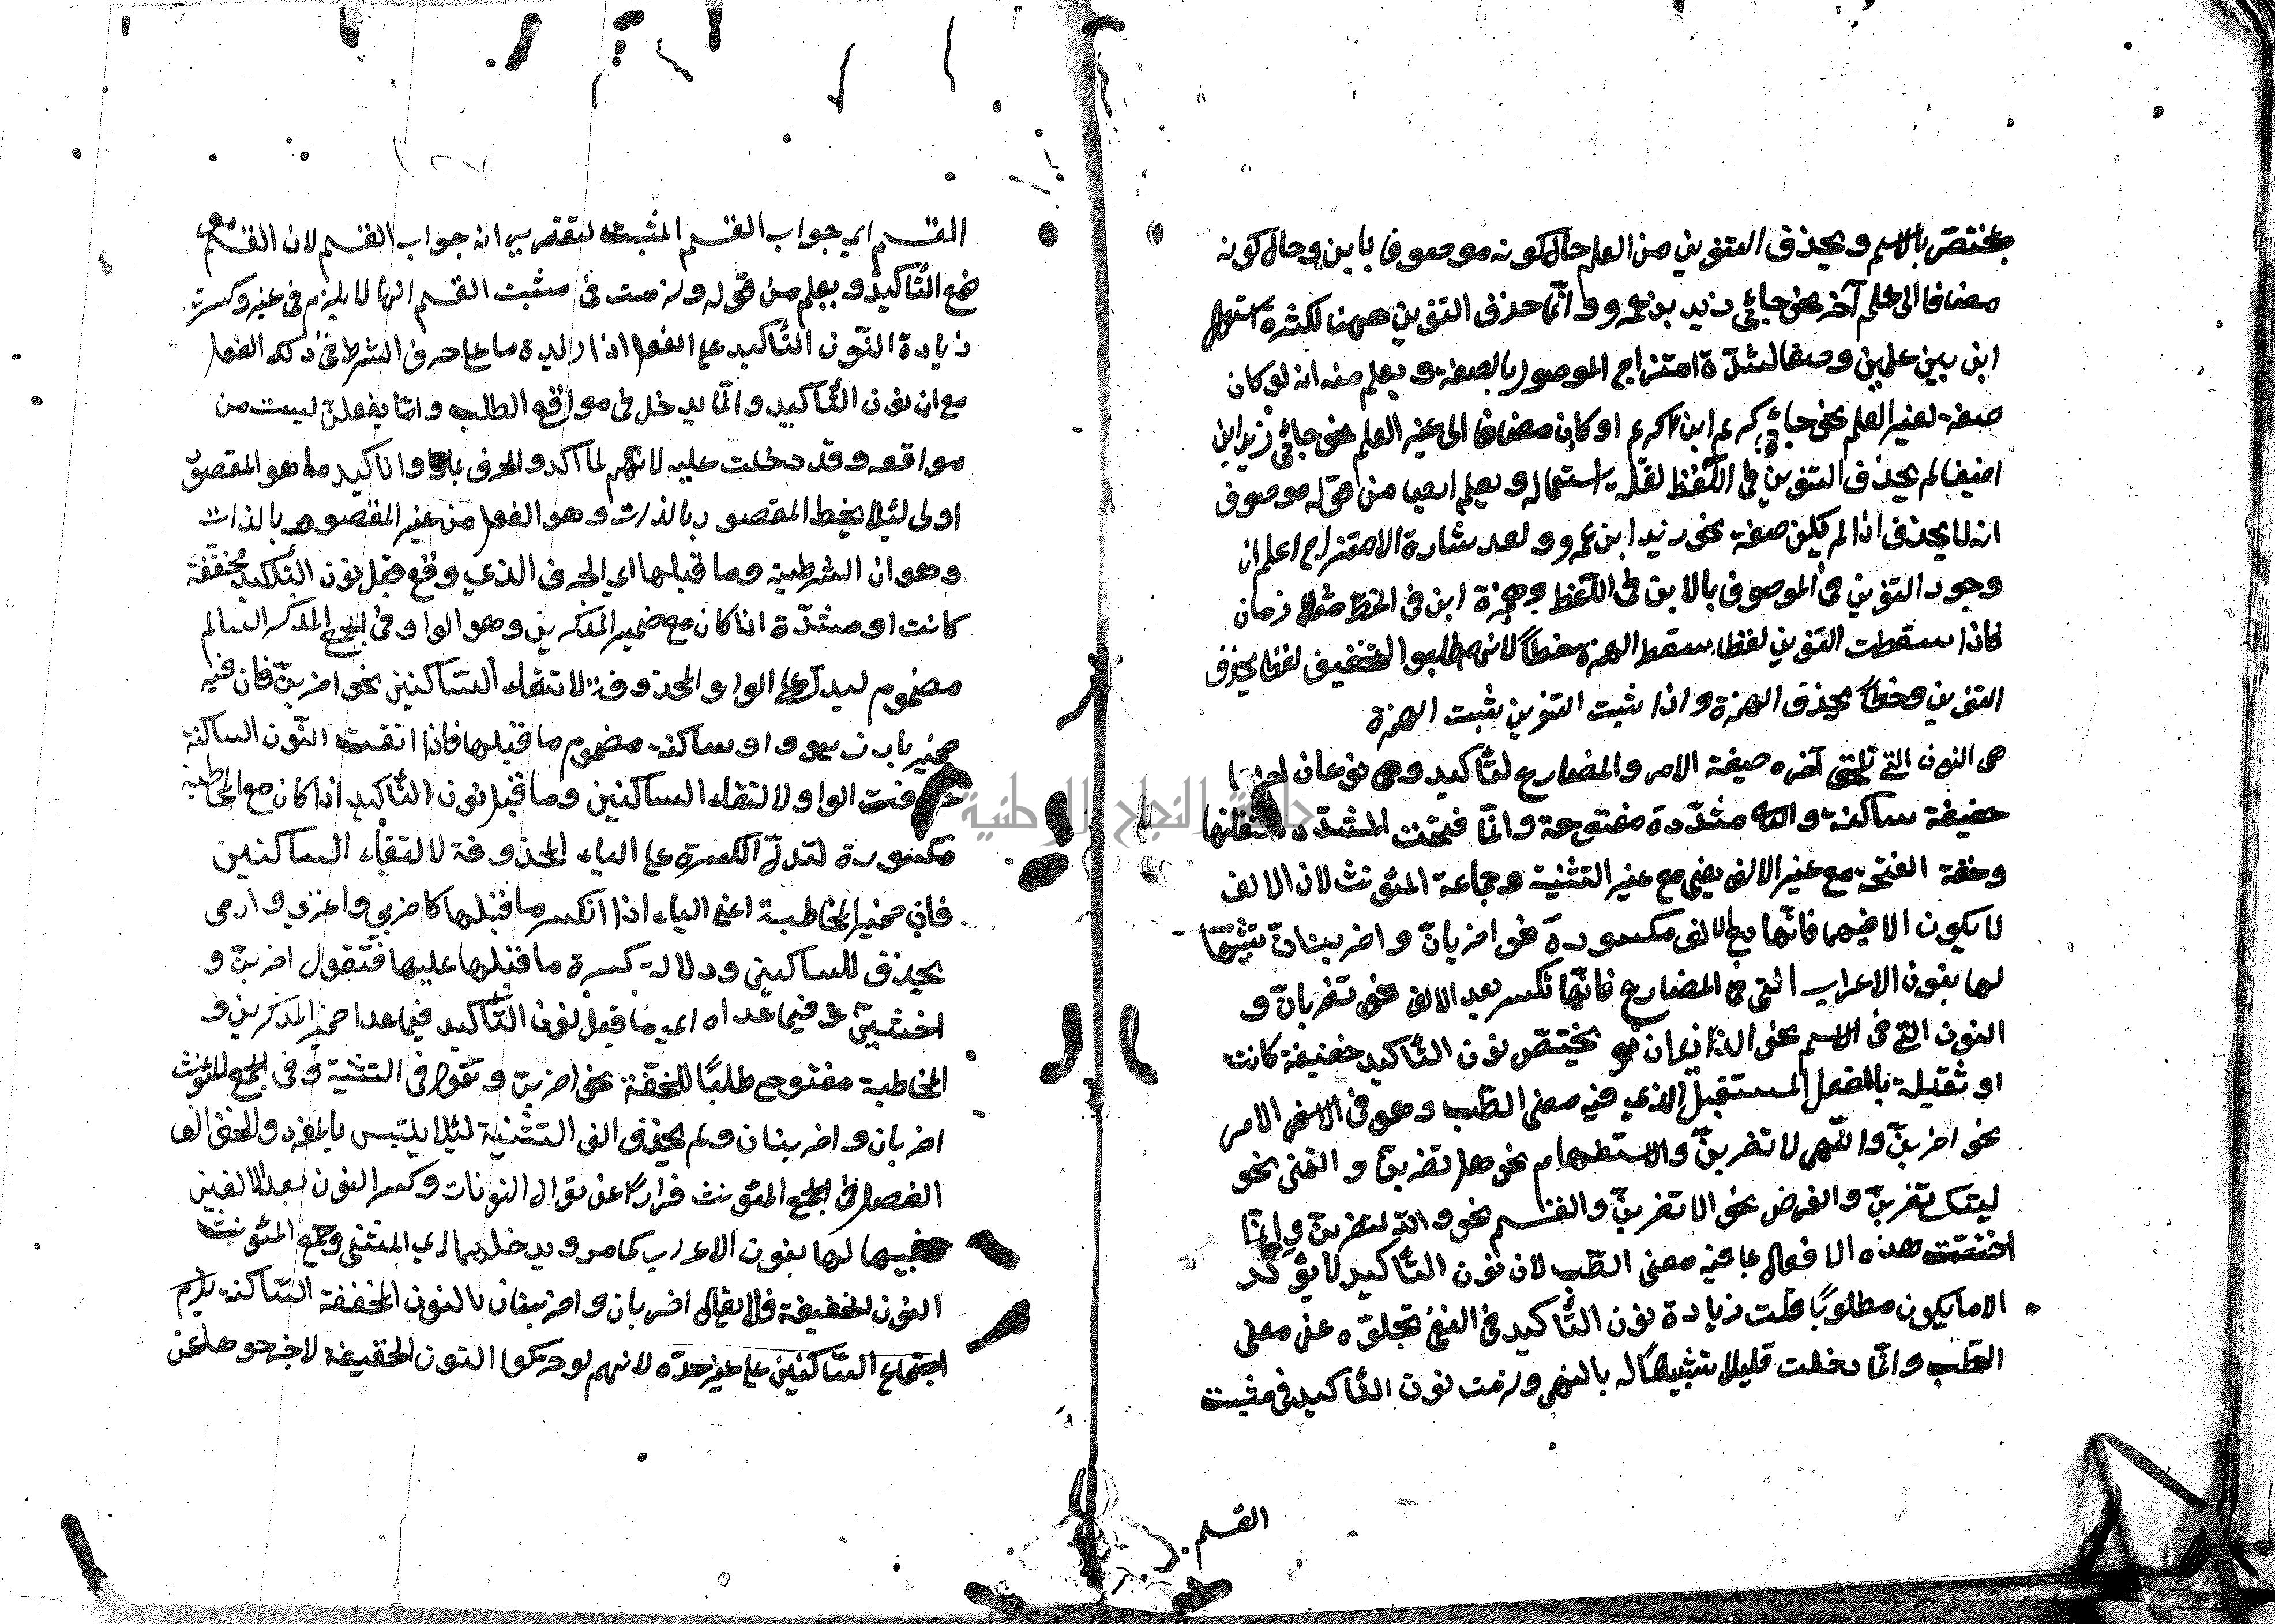 يختص بالاسم ويحذف التنوين من العلم حال كونه موصوفا بابن وحال كونه
مضافا الى علم آخر نحو جائني زيد بن عمرو وانّما حذف التنوين ههنا لكثرة استعمال
ابن بين علمين وصفا لشدّة امتزاج الموصول بالصفة ويعلم منه انه لو كان
صفة لغير العلم نحو جائني كريم ابن كريم او كان مضافا الى غير العلم نحو جائني زيد ابن
اخينا لم يحذف التنوين في اللّفظ لقلة استعماله ويعلم ايضا من قوله موصوف
انه لا يحذف اذا لم يكن صفة نحو زيد ابن عمرو ولعد الامتزاج اعلم ان
وجود التنوين في الموصوف بالابن في اللّفظ وهمزة ابن في الخطّ متلازمان
فاذا سقطت التنوين لفظا سقط الهمزة خطاً لانهم طلبوا التخفيف لفظا بحذف
التنوين وخطاً بحذف الهمزة واذا ثبت التنوين ثبت الهمزة
هى النون التى تلحق آخره صيغة الامر والمضارع لتأكيد وهى نوعان
خفيفة ساكنة و مشدّدة مفتوحة وانّما فتحت المشدّدة لثقلها
وخفة الفتحة مع غير الالف يعني مع غير التثنية وجماعة المئونث لان الالف
لا يكون الا فيهما فانّها مع الالف مكسورة نحو اضربانّ واضربنانّ تشبيها
لها بنون الاعراب التى فى المضارع فانّها تكسر بعد الالف نحو تضربان و
النون التى فى الاسم نحو الزيدان يختصّ نون التأكيد خفيفة كانت
او ثقيلة بالفعل المستقبل الذي فيه معنى الطلب وهو فى الامر
نحو اضربنّ والنّهى لا تضربنّ والاستفهام نحو هل تضربنّ والتمنى نحو
ليتك تضربنّ والعرض نحو الا تضربنّ والقسم نحو والله لتضربنّ وانّما
اختصّت هذه الافعال بما فيه معنى الطلب لان نون التأكيد لا يؤكد
الا ما يكون مطلوبًا قلت زيادة نون التأكيد فى النفى لخلوّه عن معنى
الطلب وانّما دخلت قليلا تشبيهًا له بالنهى ولزمت نون التأكيد فى مثبت
القسم
القسم اي جواب القسم المثبت انه جواب القسم لان القسم
موضع التأكيد ويعلم من قوله ولزمت فى مثبت القسم انها لا يلزم فى غيره وكسرت
زيادة النّون التأكيد على الفعل اذا زايدة ما على حرف الشرط فى ذلك الفعل
مع ان نون التأكيد وانّما يدخل فى مواقع الطلب وامّا يفعلنّ ليست من
مواقعه وقد دخلت عليه لانّهم لما اكدوا الحرف بما و تأكيد ما هو المقصود
اولى لئلا يخط المقصود بالذات وهو الفعل من غير المقصود بالذات
وهو ان الشرطية وما قبلها اي الحرف الذي وقع قبل نون التأكيد مخفّفة
كانت او مشدّدة اذا كان مع ضمير المذكرين وهو الواو فى جمع المذكر السالم
مضموم ليدلّ على الواو المحذوفة لالتقاء السّاكنين نحو اضربنّ فان فيه
ضمير بارز وهو واو ساكنة مضموم ما قبلها فاذا اتقت النّون الساكنة
حذفت الواو لالتقاء الساكنين وما قبل نون التأكيد اذا كان مع المخاطبة
مكسورة لتدلّ الكسرة على الياء المحذوفة لالتقاء الساكنين
فان ضمير المخاطبة اعنى الياء اذا انكسر ما قبلها كاضربي واغزي وارمى
يحذف للساكنين ودلالة كسرة ما قبلها عليها فتقول اضربنّ و
اخشينّ وفيما عداه اي ما قبل نون التأكيد فيما عدا ضمير المذكرين و
المخاطبة مفتوح طلبًا للخفّة نحو اضربنّ وتقول فى التثنية وفى الجمع المئونث
اضربان واضربنان ولم يحذف الف التثنية لئلا يلتبس بالمفرد والحق الف
الفصل فى الجمع المئونث فرارًا عن توالى النونات وكسر النون بعد الالفين
تشبيها لها بنون الاعراب كما مر ويدخلهما اي المثنى وجمع المئونث
النون الخفيفة فلا يقال اضربان واضربنان بالنون المخففة السّاكنة يلزم
اجتماع السّاكنين على غير حدّه لانهم لو حركوا النون الخفيفة لاخرجوها عن
جامعة النجاح الوطنية